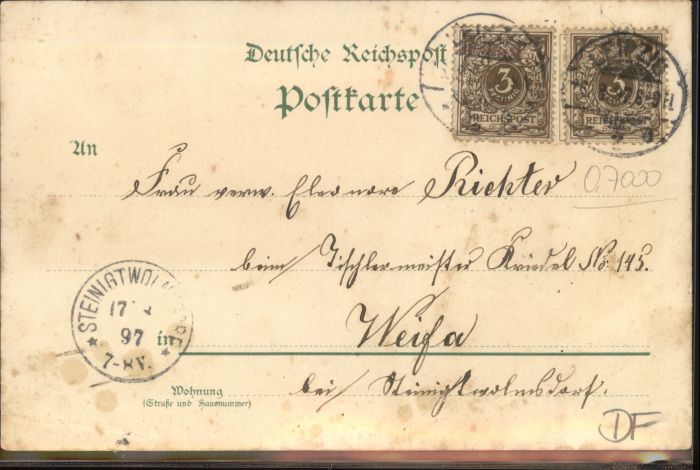 Deutsche Reichspost
Postkarte
3
REICHSPOST
3
REICHSPOST
An
Frau verw. Eleonore Richter
0.7000
beim Tischlermeister Kriedel No. 145.
STEINIGTWOLMSDORF
17
97
7-8V.
in
Weifa
Wohnung
(Straße und Hausnummer)
bei Steinigtwolmsdorf.
DF